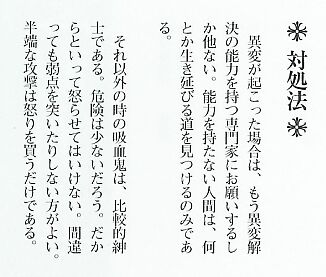 ※ 対処法 ※
異変が起こった場合は、もう異変解
決の能力を持つ専門家にお願いするし
か他ない。能力を持たない人間は、何
とか生き延びる道を見つけるのみであ
る。
それ以外の時の吸血鬼は、比較的紳
士である。危険は少ないだろう。だか
らといって怒らせてはいけない。間違
っても弱点を突いたりしない方がよい。
半端な攻撃は怒りを買うだけである。